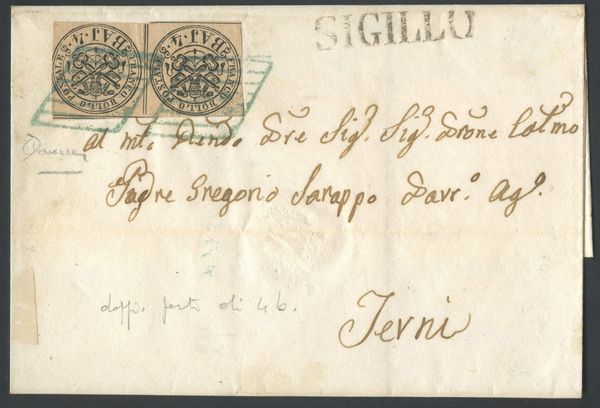 FRANCO BOLLO POSTALE BAJ. 4.
FRANCO BOLLO POSTALE BAJ. 4.
SIGILLO
Al Mto. Rendo. Pre Sig. Sig. Prone Colmo
Padre Gregorio Sarappo Parr.o Ag.o
doppio porto di 4 b.
Terni